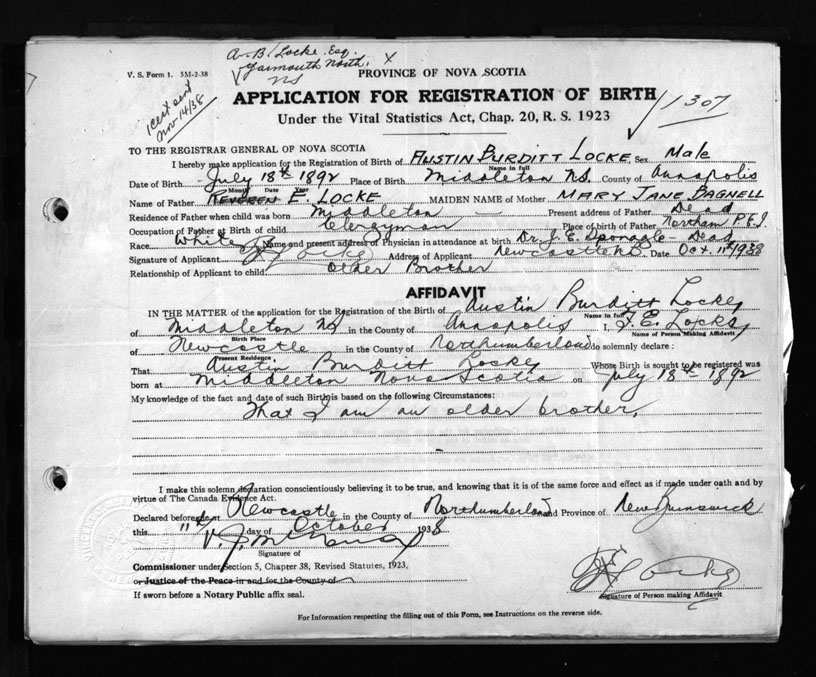 A. B. Locke Esq.
V. S. Form 1. 5M-2-38
Yarmouth North, X
NS
PROVINCE OF NOVA SCOTIA
1 cert sent
Nov 14/38
APPLICATION FOR REGISTRATION OF BIRTH
1307
Under the Vital Statistics Act, Chap. 20, R. S. 1923
TO THE REGISTRAR GENERAL OF NOVA SCOTIA
I hereby make application for the Registration of Birth of AUSTIN BURDITT LOCKE Sex Male
Name in full
Date of Birth July 18th 1892 Place of Birth Middleton N.S. County of Annapolis
Month Date Year
Name of Father E. LOCKE MAIDEN NAME of Mother MARY JANE BAGNELL
Residence of Father when child was born Middleton Present address of Father Dead
Occupation of Father at Birth of child Clergyman Place of birth of Father P.E.I
Race White Name and present address of Physician in attendance at birth Dr. J. E. Sponagle Dead
Signature of Applicant Locke Address of Applicant Newcastle N.B. Date Oct 11th/1938
Relationship of Applicant to child Older Brother
AFFIDAVIT
IN THE MATTER of the application for the Registration of the Birth of Austin Burditt Locke
Name in full
of Middleton NS in the County of Annapolis I, F. E. Locke
Birth Place Name of Person Making Affidavit
of Newcastle in the County of Northumberland do solemnly declare :
Present Residence
That Austin Burditt Locke Whose Birth is sought to be registered was
born at Middleton Nova Scotia on July 18th 1892
My knowledge of the fact and date of such Birth is based on the following Circumstances:
That I am an older brother.
I make this solemn declaration conscientiously believing it to be true, and knowing that it is of the same force and effect as if made under oath and by
virtue of The Canada Evidence Act.
Declared before me at Newcastle in the County of Northumberland and Province of New Brunswick
this 11th day of October 1938
Signature of
Commissioner under Section 5, Chapter 38, Revised Statutes, 1923,
or Justice of the Peace in and for the County of
Locke
If sworn before a Notary Public affix seal.
Signature of Person making Affidavit
For Information respecting the filling out of this Form, see Instructions on the reverse side.